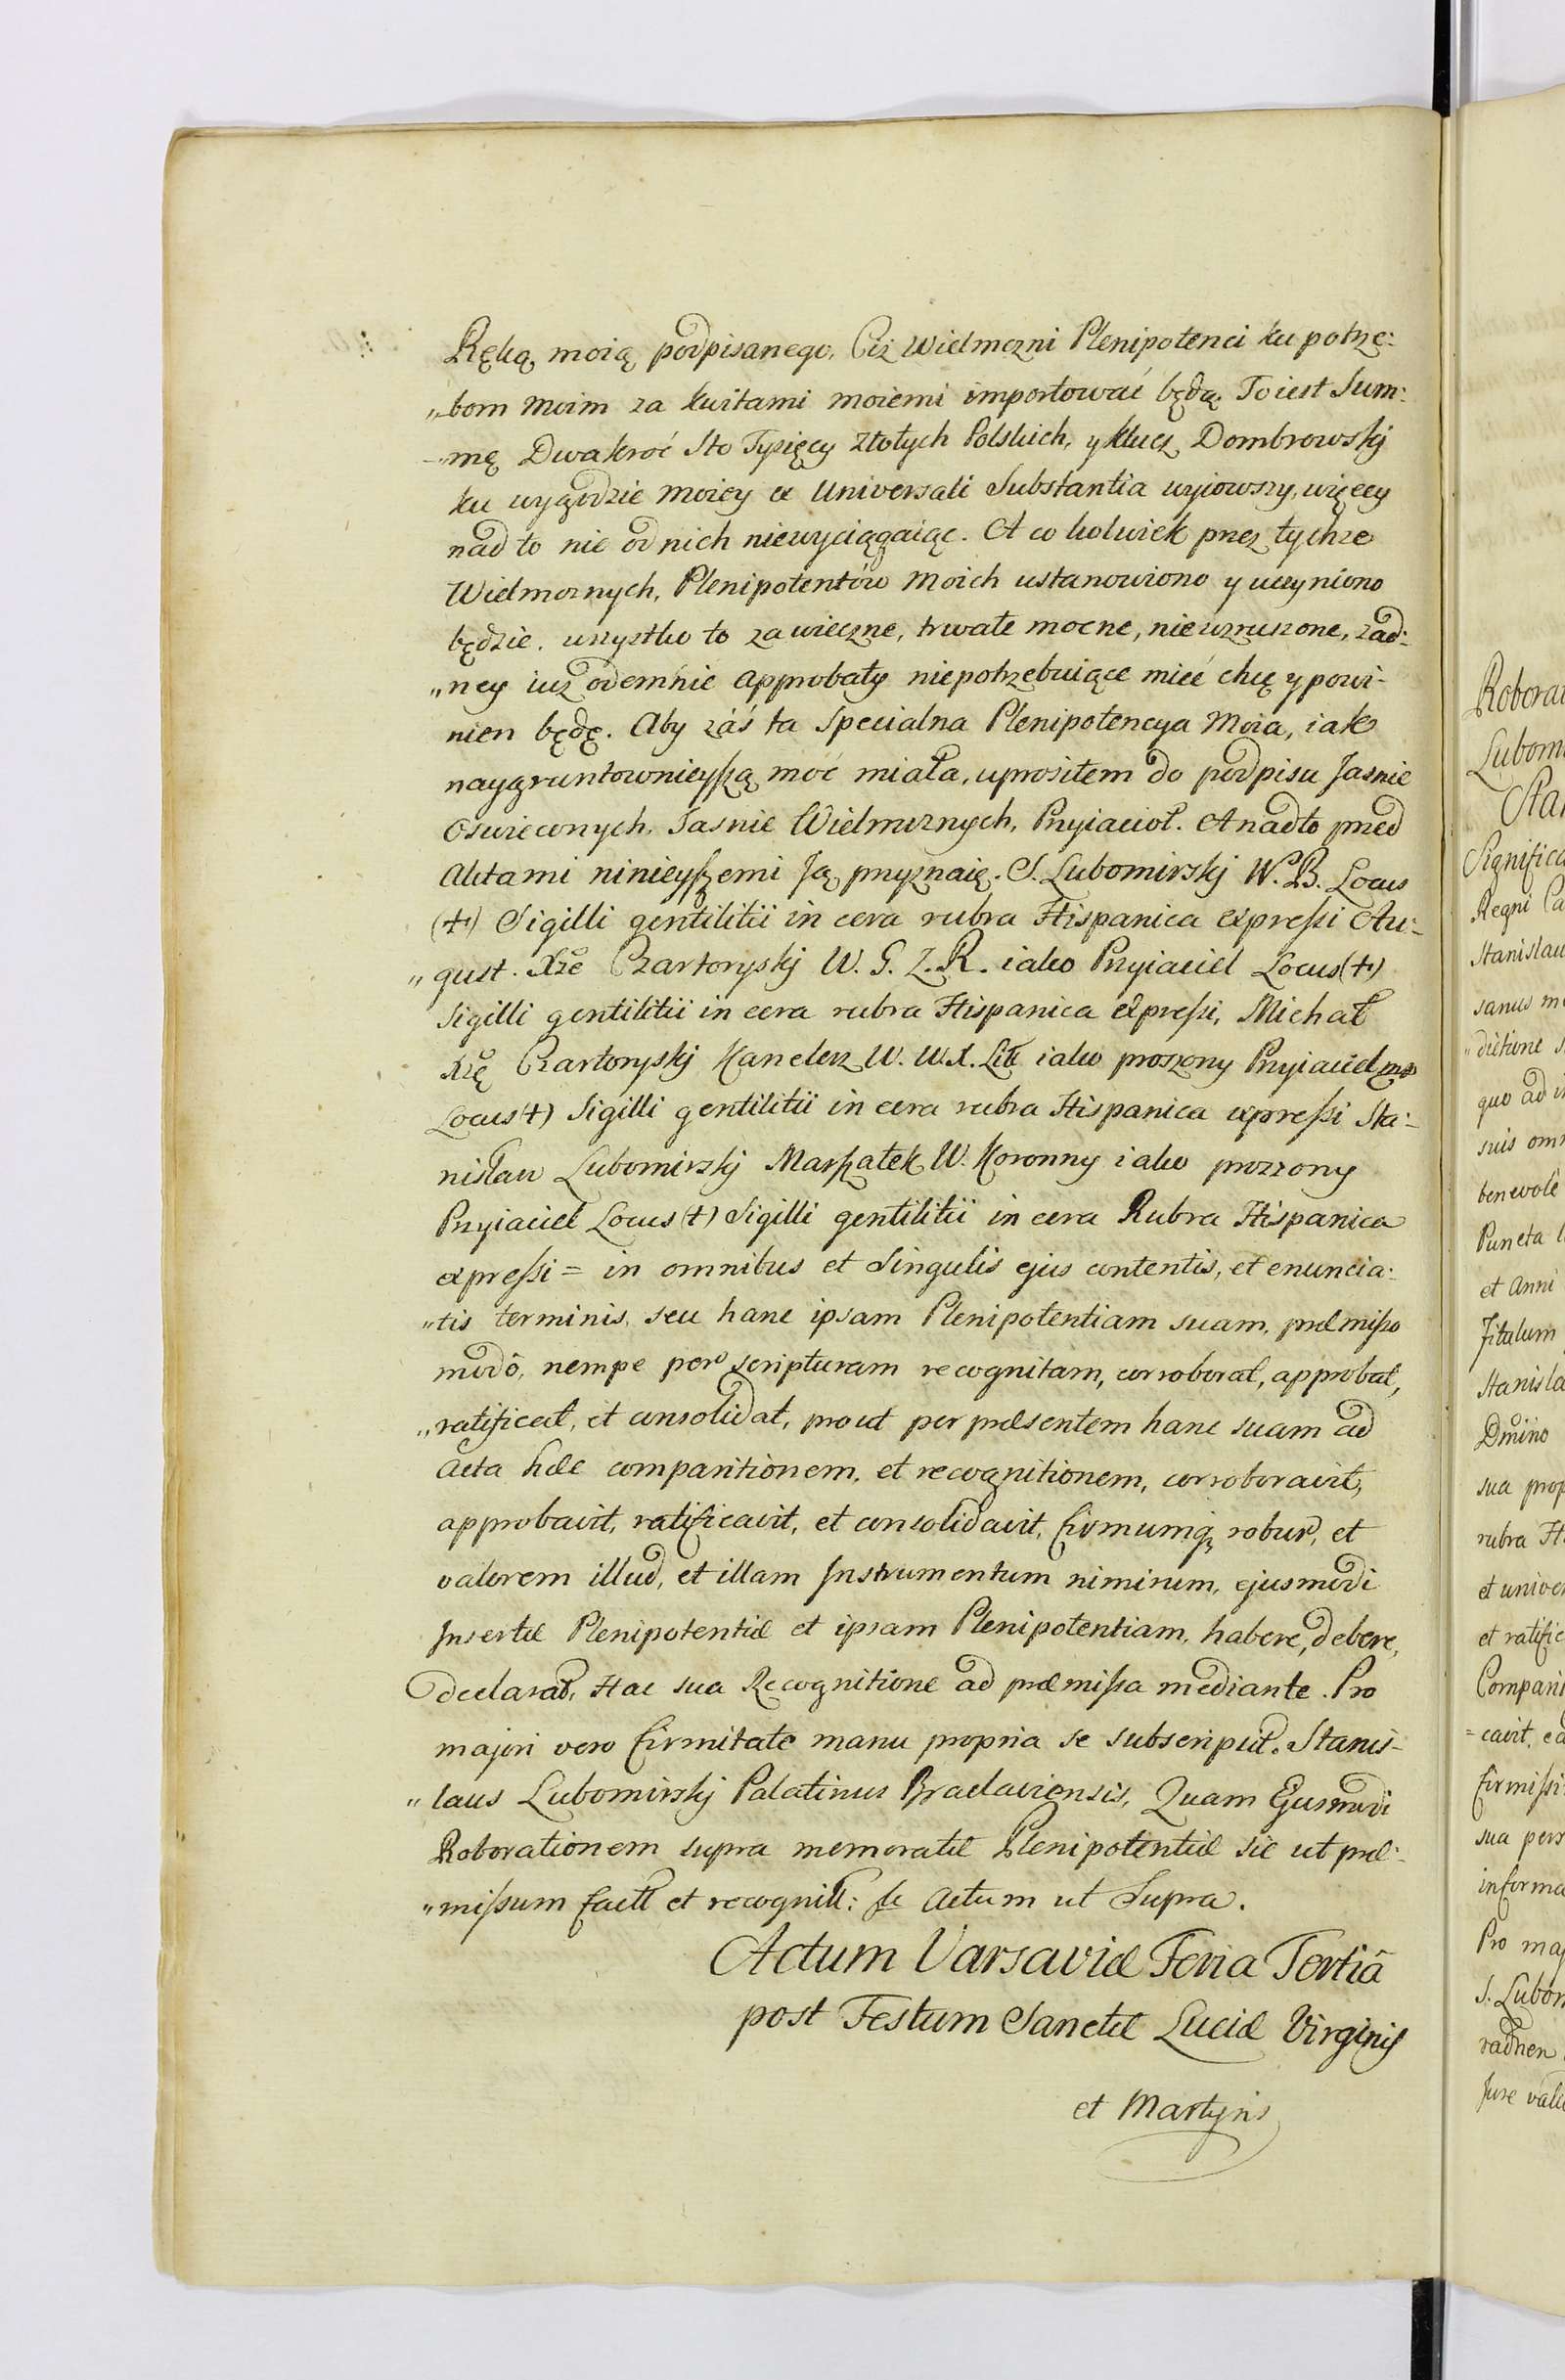 Ręką moią podpisanego, Ciż Wielmozni Plenipotenci ku potrzę:
„bom moim za kwitami moiemi importować będą. To iest Sum:
„mę Dwakroć Sto Tysięcy Złotych Polskich, y klucz Dombrowskj
ku wygodzie moiey ex Universali Substantia wyiowszy, więcey
nad to nic od nich niewyciągaiąc. A co kolwiek przez tychże
Wielmoznych, Plenipotentów moich ustanowiono y uczyniono
będzie, wszystko to za wieczne, trwałe mocne, niewzruszone, żad:
„ney iuż odemnie approbaty niepotrzebuiące mieć chcę y powi-
nien będę. Aby zás ta Specialna Plenipotencya Moia, iak
naygruntownieyszą moć miała, uprosiłem do podpisu Jasnie
Oswieconych, Jasnie Wielmoznych, Przyiacioł. A nadto przed
Aktami ninieyszemi Ją przyznaię. S. Lubomirskj W. B. Locus
(+) Sigilli gentilitii in cera rubra Hispanica expressi Au:
„gust. Xże Czartoryskj W. G. Z. R. iako Przyiaciel Locus (+)
Sigilli gentilitii in cera rubra Hispanica expressi, Michał
Xżę Czartoryskj Kanclerz W. W. X. Litt iako proszony Przyiaciel mp
Locus (+) Sigilli gentilitii in cera rubra Hispanica expressi Sta:
nisław Lubomirskj Marszałek W. Koronny iako proszony
Przyiaciel Locus (+) Sigilli gentilitii in cera Rubra Hispanica
expressi = in omnibus et Singulis ejus contentis, et enuncia:
„tis terminis, seu hanc ipsam Plenipotentiam suam, præmisso
modô, nempe per scripturam recognitam, corroborat, approbat,
„ratificat, et consolidat, prout per præsentem hanc suam ad
Acta hæc comparitionem, et recognitionem, corroboravit,
approbavit, ratificavit, et consolidavit, firmumq robur, et
valorem illud, et illam Instrumentum nimirum, ejusmodi
Insertæ Plenipotentiæ et ipsam Plenipotentiam, habere, debere,
declarat, Hac sua Recognitione ad præmissa mediante. Pro
majori vero firmitate manu propria se subscripsit. Stanis-
„laus Lubomirskj Palatinus Braclaviensis, Quam Ejusmodi
Roborationem supra memoratæ Plenipotentiæ sic ut præ:
„missum factt et recognitt: Actum ut Supra.
Actum Varsaviæ Feria Tertiâ
post Festum Sanctæ Luciæ Virginis
et Martyris
Roborat
Lubomi
Stan
Significa
Regni Ca
Stanislau
sanus m
„dictione s
quo ad i
suis omn
benevole
Puncta l
et Anni
Titulum
Stanisla
Dmino
sua prop
rubra H
et univer
et ratific
Compari
=cavit, ea
firmissi
sua pers
informa
Pro maj
S. Lubom
radnen
Jure vali